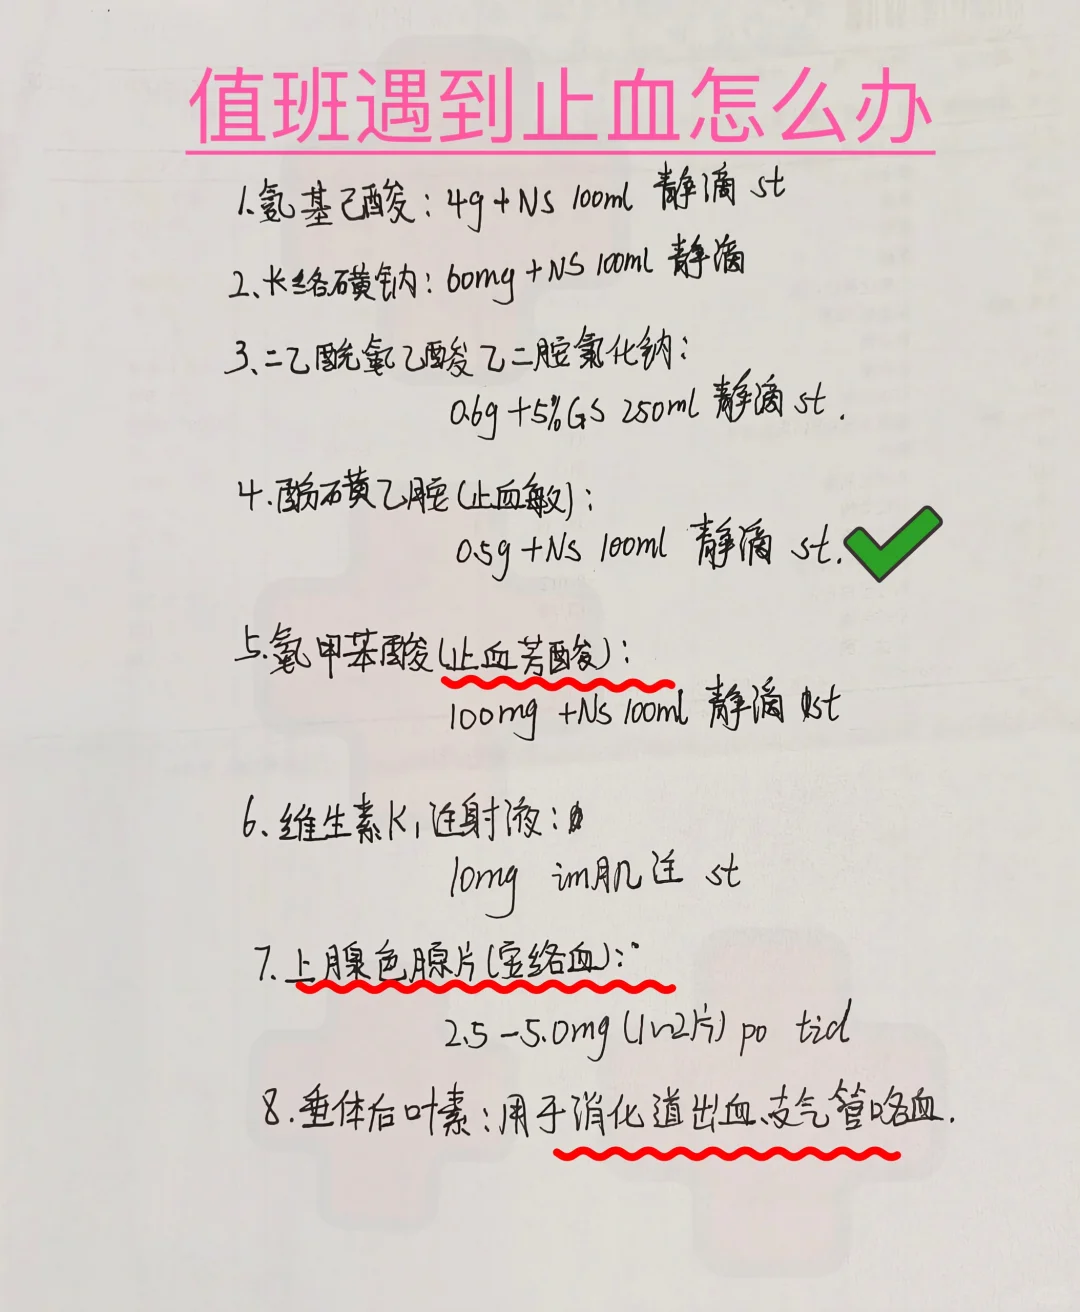 值班遇到止血怎么办
1.氨基己酸：4g+NS 100ml 静滴 st
2、卡络磺钠：60mg+NS 100ml 静滴
3、二乙酰氨乙酸乙二胺氯化钠：
0.6g+5%GS 250ml 静滴 st.
4.酚磺乙胺(止血敏)：
0.5g+NS 100ml 静滴 st.
5.氨甲苯酸(止血芳酸)：
100mg +NS 100ml 静滴 st
6、维生素K1注射液：
10mg im肌注 st
7.上腺色腙片(安络血)：
2.5-5.0mg(1~2片) po tid
8.垂体后叶素：用于消化道出血、支气管咯血.